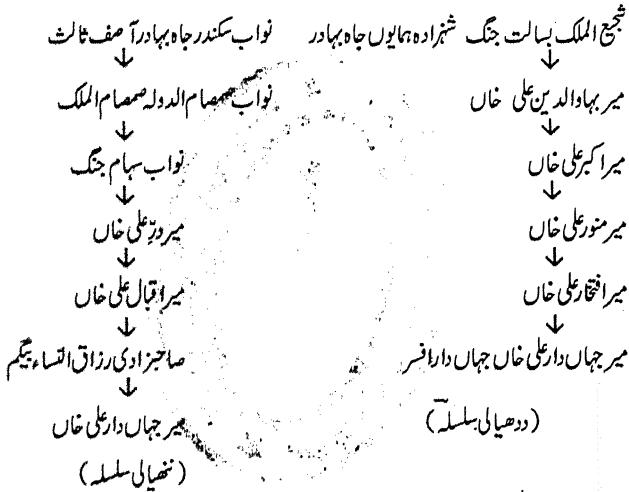 شجیع الملک بسالت جنگ شہزادہ ہمایوں جاہ بہادر
↓
میر بہاو الدین علی خاں
↓
میر اکبر علی خاں
↓
میر منور علی خاں
↓
میر افتخار علی خاں
↓
میر جہاں دار علی خاں جہاں دار افسر
(ددھیالی سلسلہ)
نواب سکندر جاہ بہادر آصف ثالث
↓
نواب صمصام الدولہ صمصام الملک
↓
نواب سہام جنگ
↓
میر درِّ علی خاں
↓
میر اقبال علی خاں
↓
صاحبزادی رزاق النساء بیگم
↓
میر جہاں دار علی خاں
(ننھیالی سلسلہ)